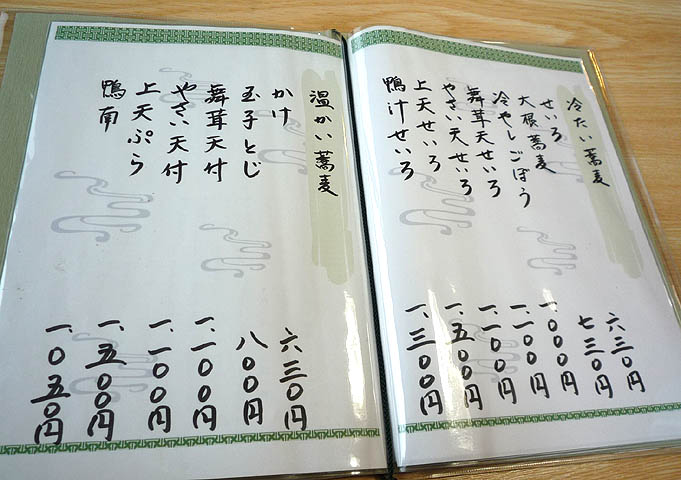 冷たい蕎麦
せいろ 六三〇円
大根蕎麦 七三〇円
冷やしごぼう 一、〇〇〇円
舞茸天せいろ 一、一〇〇円
やさい天せいろ 一、一〇〇円
上天せいろ 一、五〇〇円
鴨汁せいろ 一、三〇〇円
温かい蕎麦
かけ 六三〇円
玉子とじ 八〇〇円
舞茸天付 一、一〇〇円
やさい天付 一、一〇〇円
上天ぷら 一、五〇〇円
鴨南 一、〇五〇円